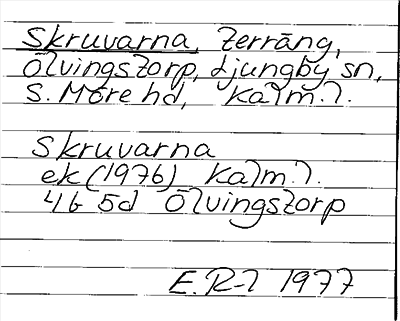 Skruvarna, Terräng,
Ölvingstorp, Ljungby sn,
S. Möre hd, Kalm. l.
Skruvarna
ek (1976) Kalm. l.
4G 5d Ölvingstorp
E. R-l 1977